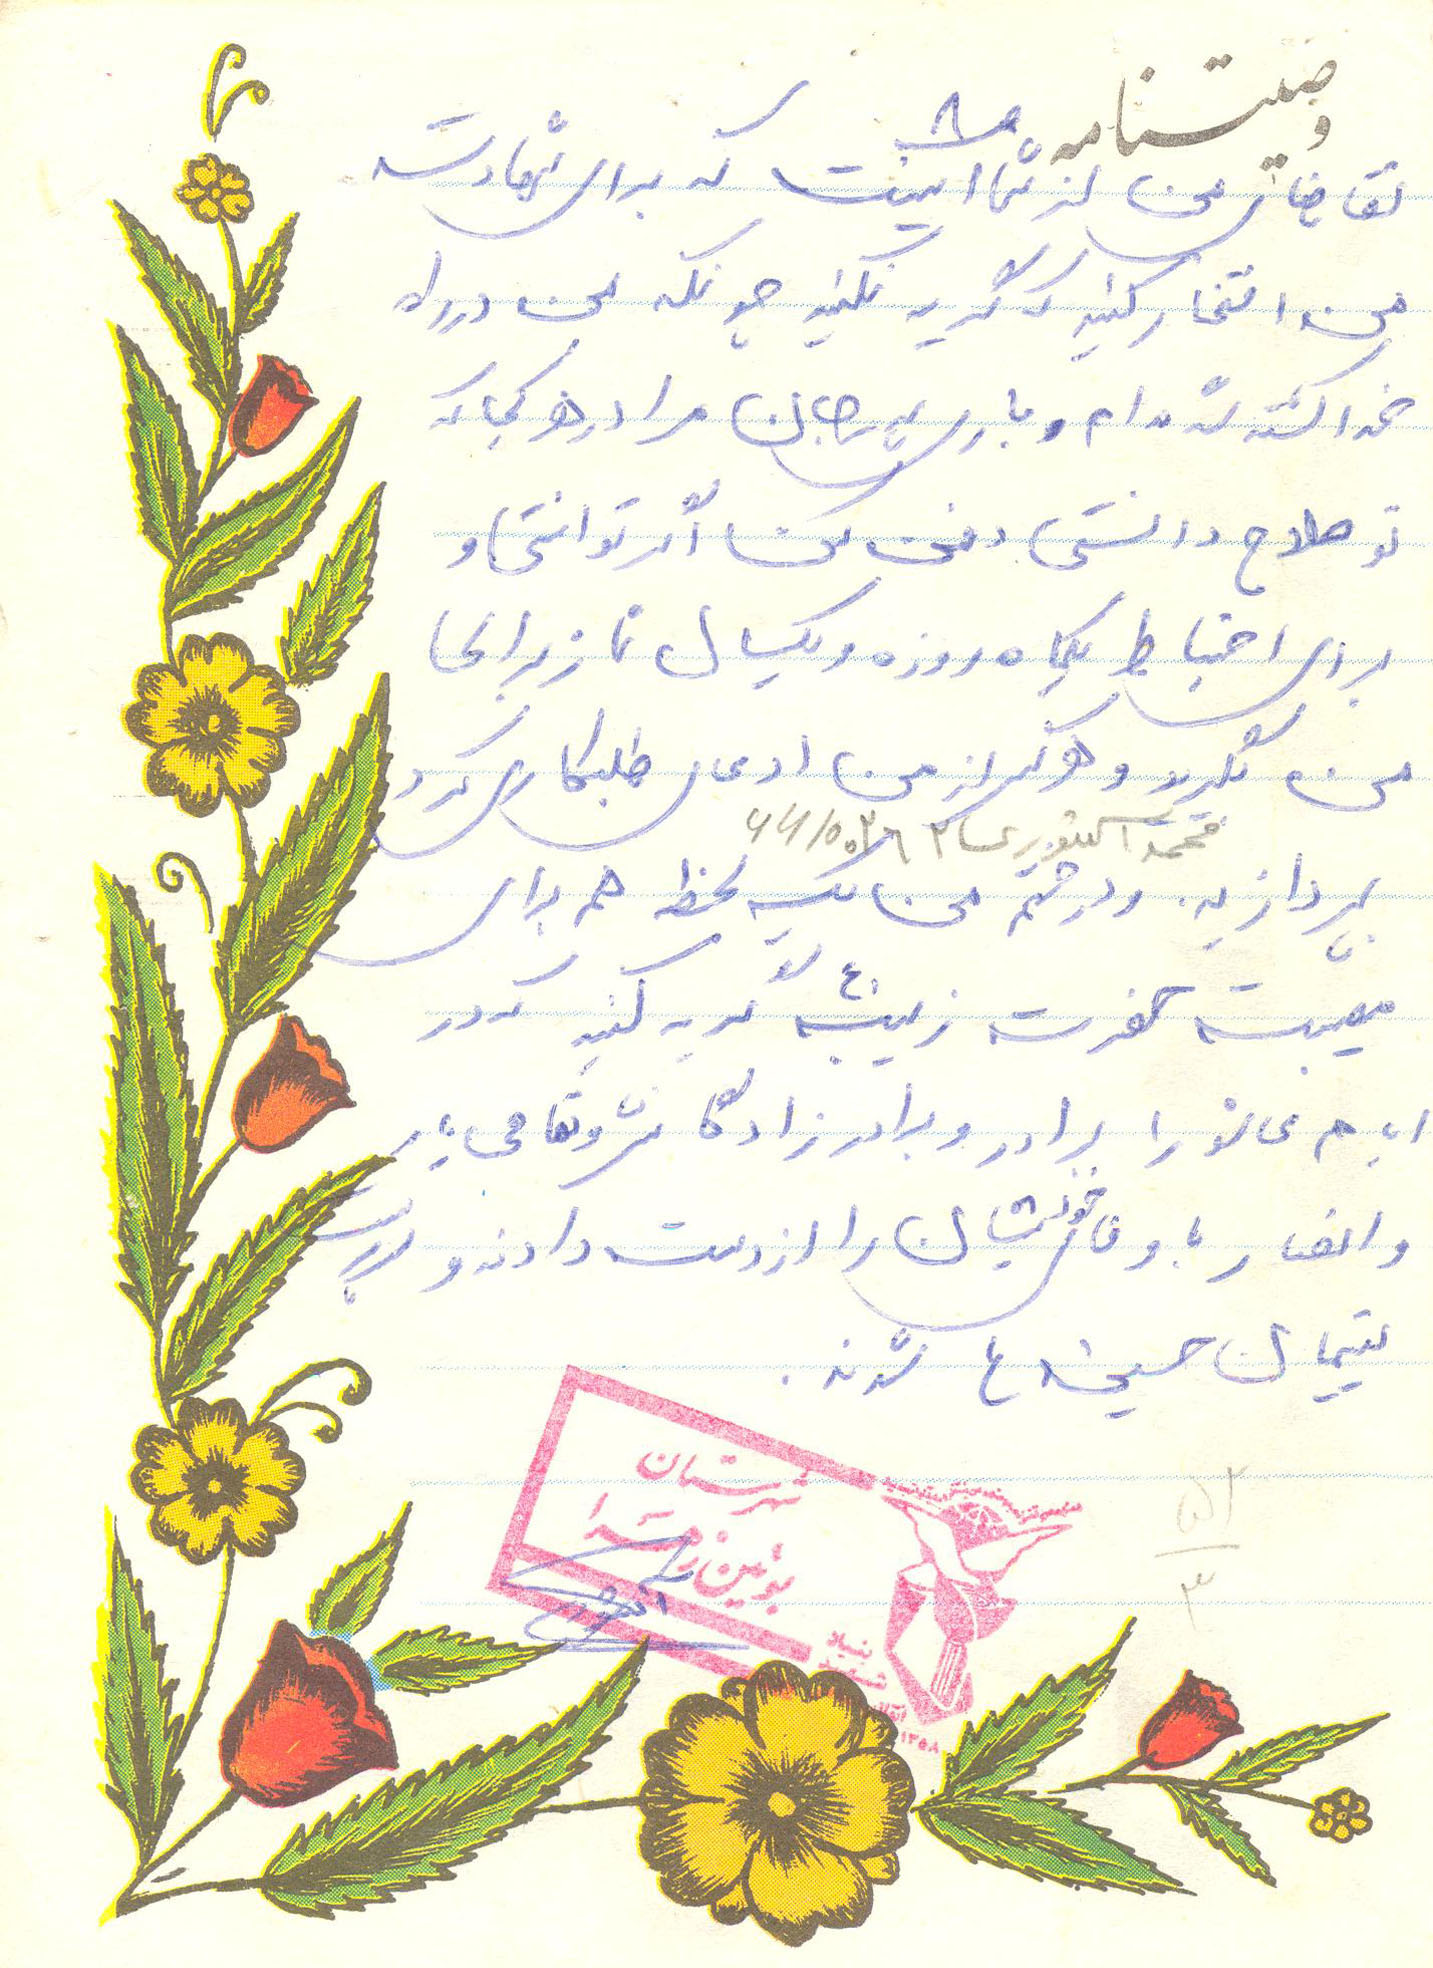 وصیتنامه
تقاضای من از شما اینست که برای شهادت
من افتخار کنید و گریه نکنید چونکه من در راه
خدا کشته شده‌ام و مرا در هر کجا که
تو صلاح دانستی دفن کن اگر توانستی و
برای احتیاط یکماه روزه و یکسال نماز برایم بجا
من بگیرید و هر کس از من ادعای طلبکاری کرد
بپردازید. و در ختم من یک لحظه هم برای
مصیبت حضرت زینب ع گریه کنید که در
ایام عاشورا برادر و برادرزادگانش و تمامی یار
و انصار باوفای خویشان را از دست دادند و سرپرست
یتیمان حسین ع شدند.
شهرستان
بوئین زهرا
بنیاد
شهید
۱۳۵۸
۵۲
۳